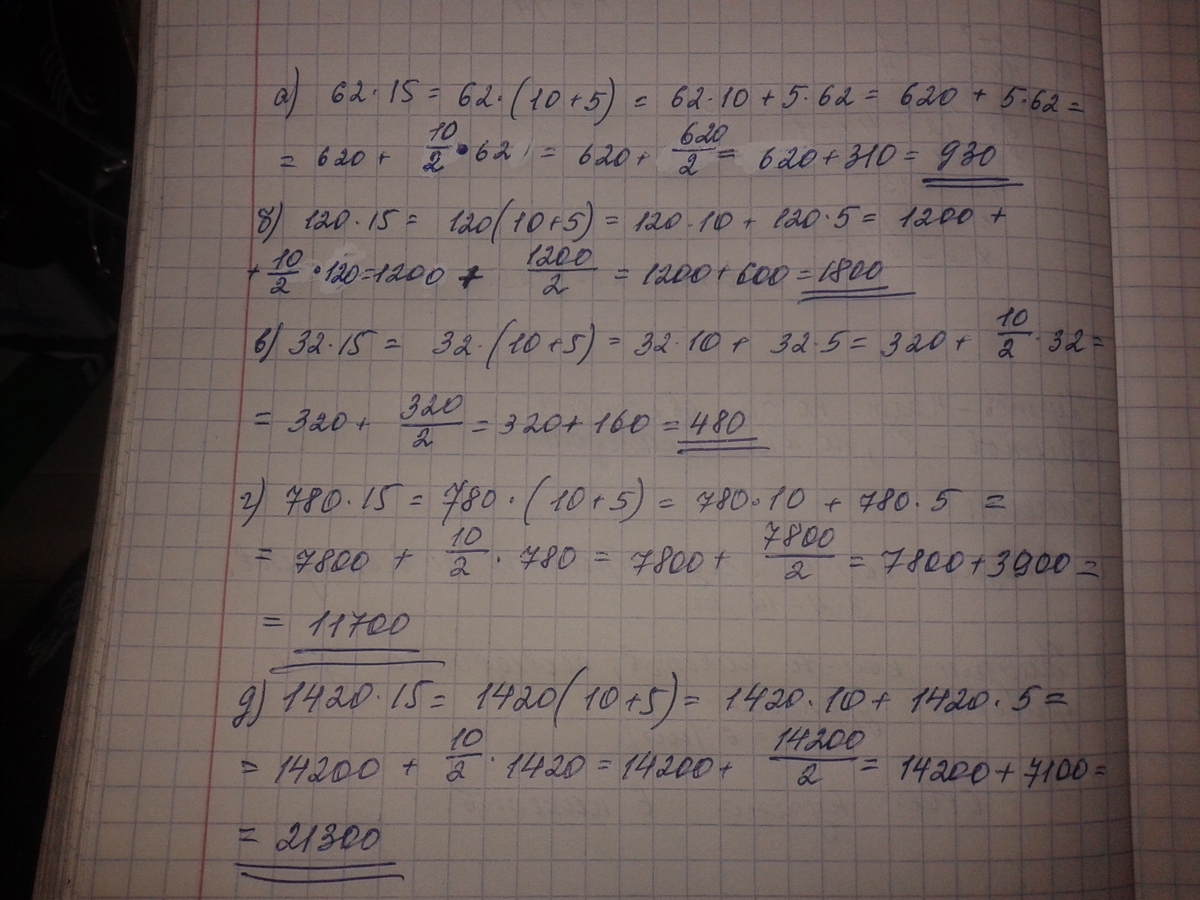 а) 62·15 = 62·(10+5) = 62·10 + 5·62 = 620 + 5·62 =
= 620 + 10/2 · 62 = 620 + 620/2 = 620 + 310 = 930
б) 120·15 = 120(10+5) = 120·10 + 120·5 = 1200 +
+ 10/2 · 120 = 1200 + 1200/2 = 1200 + 600 = 1800
в) 32·15 = 32·(10+5) = 32·10 + 32·5 = 320 + 10/2 · 32 =
= 320 + 320/2 = 320 + 160 = 480
г) 780·15 = 780·(10+5) = 780·10 + 780·5 =
= 7800 + 10/2 · 780 = 7800 + 7800/2 = 7800 + 3900 =
= 11700
д) 1420·15 = 1420(10+5) = 1420·10 + 1420·5 =
= 14200 + 10/2 · 1420 = 14200 + 14200/2 = 14200 + 7100 =
= 21300